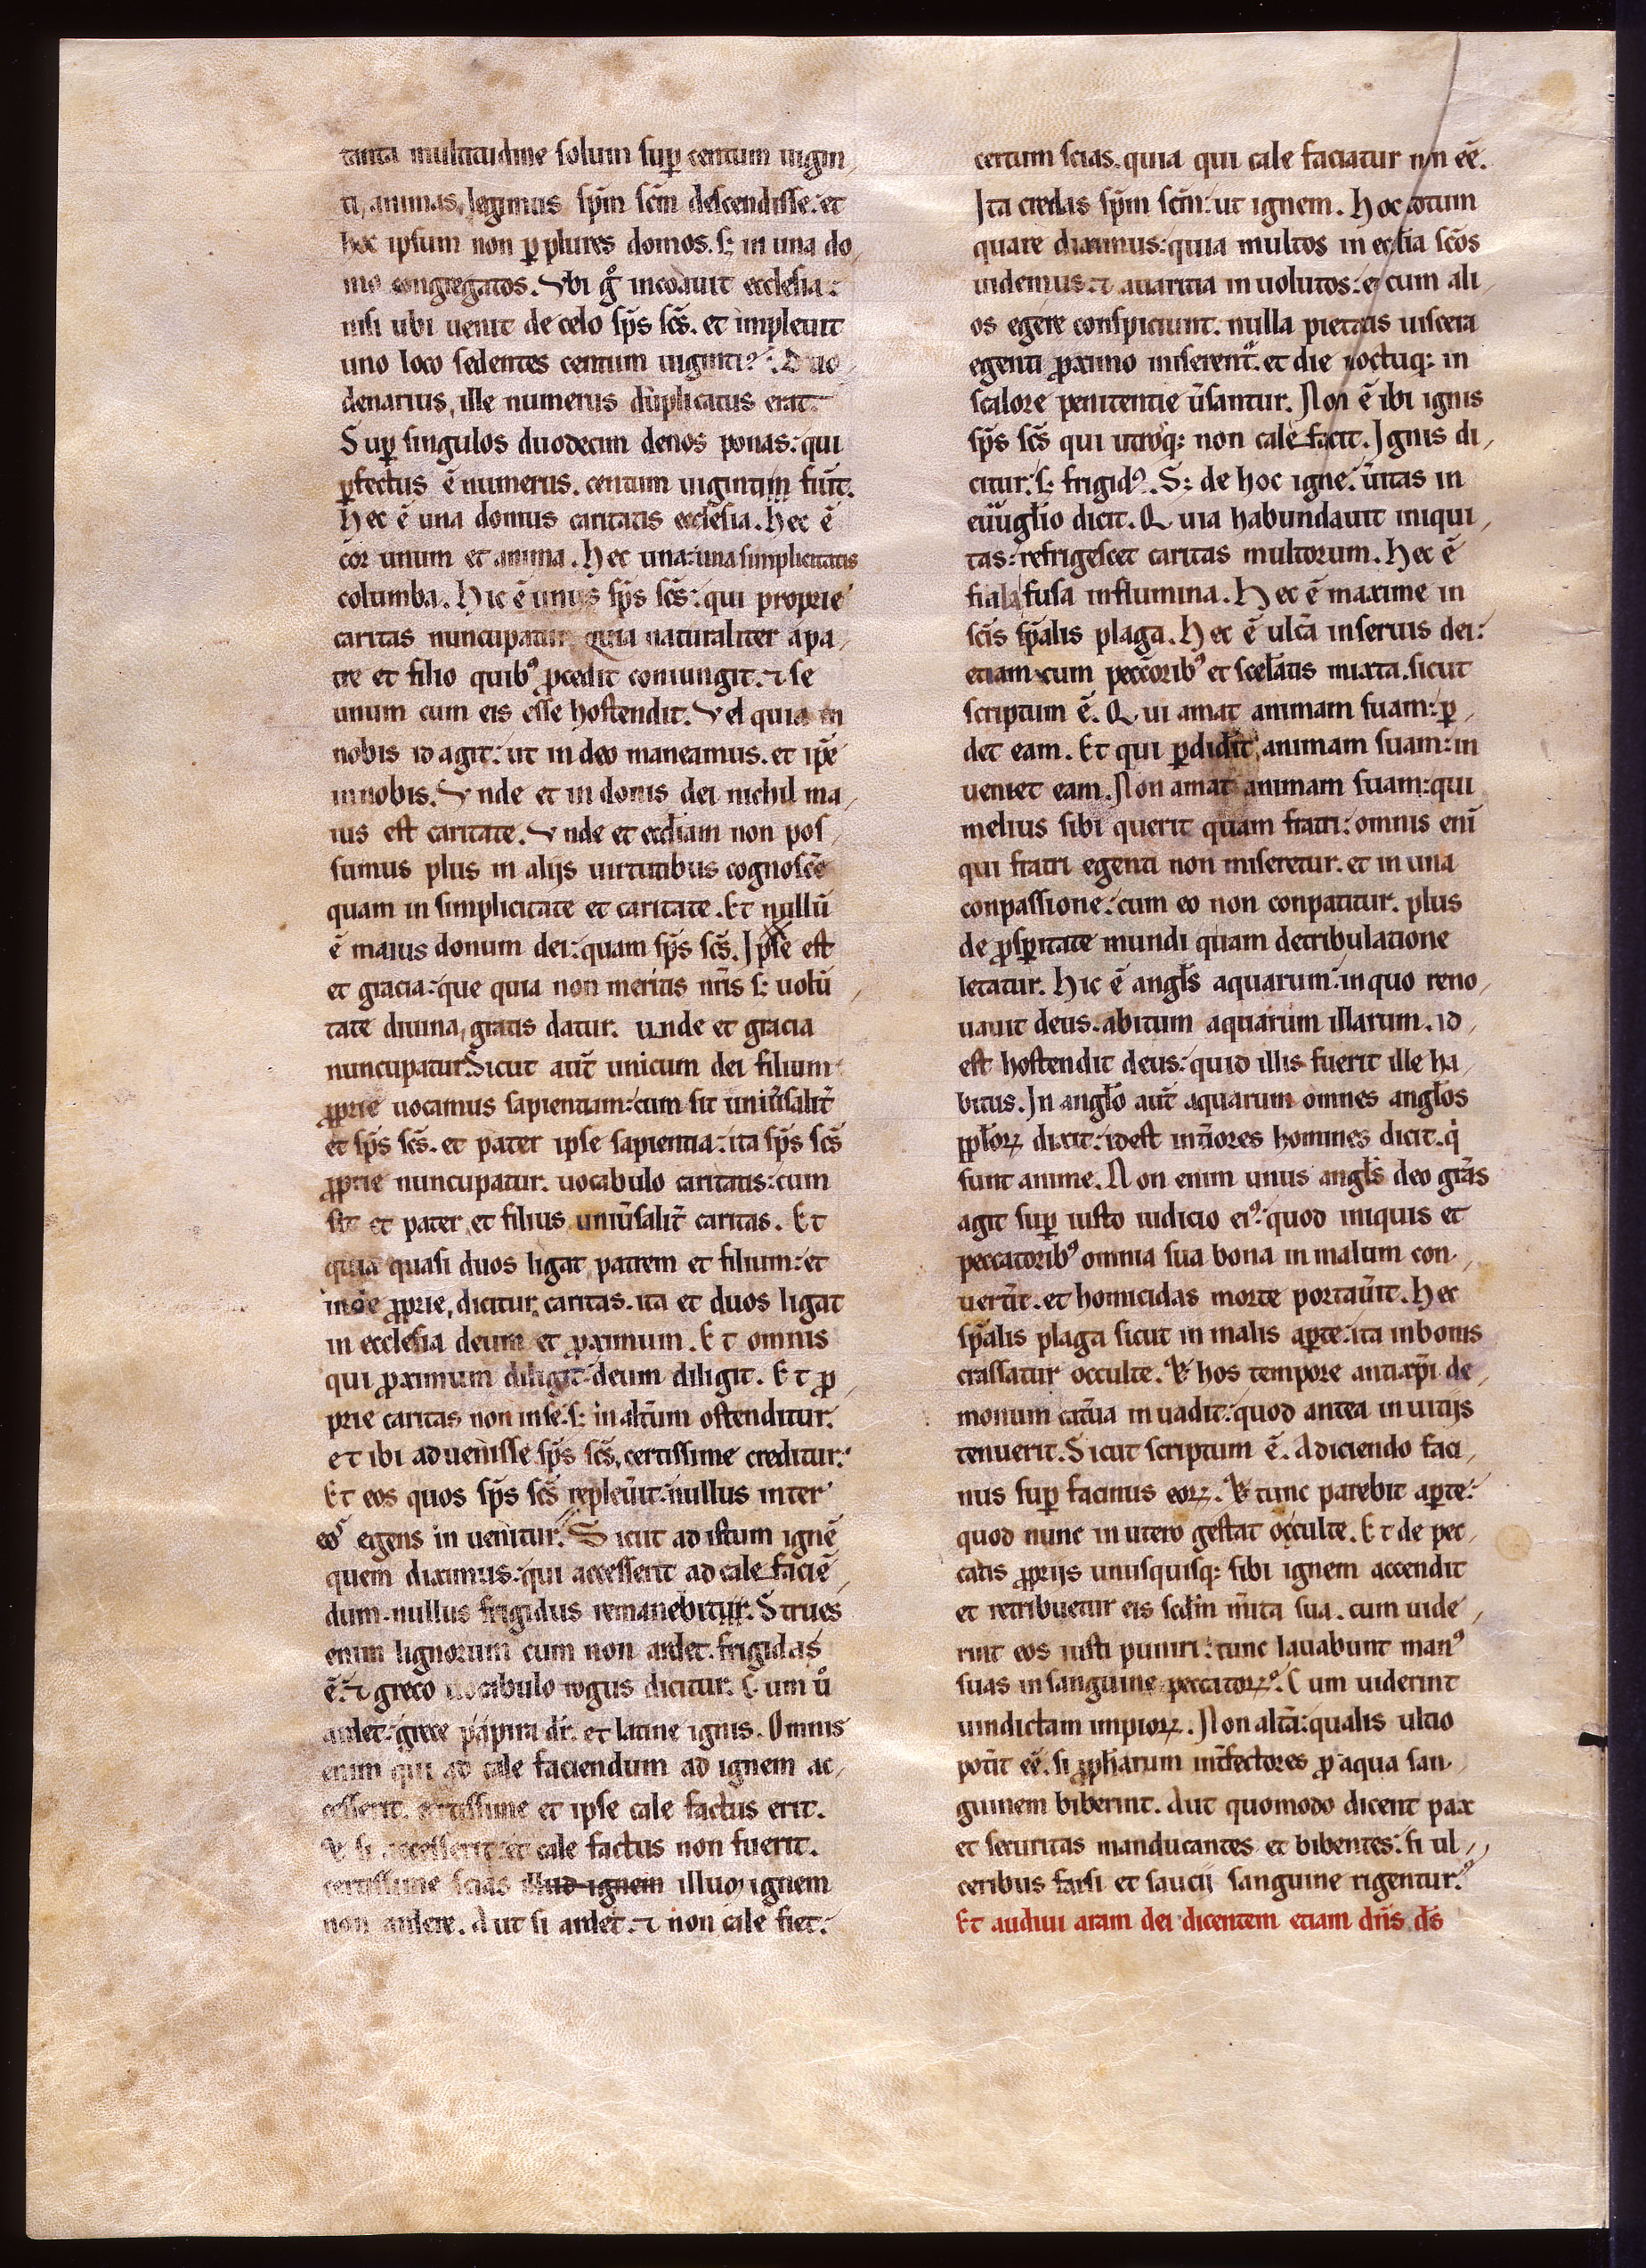 tanta multitudine solum sup̱ centum uigin
ti, animas, legimus sp̄m sc̄m descendisse: et
hoc ipsum non ꝑ plures domos. s; in una do
mo congregatos. Vbi gͦ incoauit ecclesia:
nisi ubi uenit de celo sp̄s sc̄s. et impleuit
uno loco sedentes centum uiginti? Duo
denarius, ille numerus duplicatus erat.
Suꝑ singulos duodecim denos ponas: qui
ꝑfectus ē numerus. centum uiginti fuīt.
Hec ē una domus caritatis ecclesia. Hec ē
cor unum et anima. Hec una: una simplicitatis
columba. Hic ē unus sp̄s sc̄s: qui proprie
caritas nuncupatur quia naturaliter apa
tre et filio quibꝰ ꝓcedit coniungit. ⁊ se
unum cum eis esse hostendit. Vel quia in
nobis id agit: ut in deo maneamus. et ip̄e
in nobis. Vnde et in donis dei nichil ma
ius est caritate. Vnde et eccl̄iam non pos
sumus plus in alijs uirtutibus cognosc̄e
quam in simplicitate et caritate. Et nullū
ē maius donum dei: quam sp̄s sc̄s. Ipse est
et gracia: que quia non meritis nr̄is s; uolū
tate diuina, gratis datur. unde et gracia
nuncupatur. Sicut aūt unicum dei filium
ꝓprie uocamus sapientiam: cum sit uniūsalit̄
et sp̄s sc̄s. et pater ipse sapientia: ita sp̄s sc̄s
ꝓprie nuncupatur. uocabulo caritatis: cum
sit et pater, et filius uniūsalit̄ caritas. Et
quia quasi duos ligat patrem et filium: et
inde ꝓprie, dicitur, caritas. ita et duos ligat
in ecclesia deum et ꝓximum. Et omnis
qui ꝓximum diligit: deum diligit. Et ꝓ
prie caritas non in se. s; in alt̄um ostenditur.
et ibi aduenisse sp̄s sc̄s, certissime creditur.
Et eos quos sp̄s sc̄s repleūit: nullus inter
eos egens in uenitur. Sicut ad istum ignē
quem diximus: qui accesserit ad cale faciē
dum. nullus frigidus remanebitur. Strues
enim lignorum cum non ardet. frigidas
ē. ⁊ greco uocabulo rogus dicitur. Cum uͦ
ardet: grece papira dr̄. et latine ignis. Omnis
enim qui ad cale faciendum ad ignem ac
cesserit. certissime et ipse cale factus erit.
Et si accesserit: et cale factus non fuerit.
certissime scias illud ignem illuọ ignem
non ardere. Aut si ardet. ⁊ non cale fiet:
certum scias. quia qui cale faciatur non eē.
Ita credas sp̄m sc̄m: ut ignem. Hoc totum
quare diximus: quia multos in ecl̄ia sc̄os
uidemus. ⁊ auaritia in uolutos: et cum ali
os egere conspiciunt. nulla pietatis uiscera
egenti ꝓximo miserent᷑. et die noctuq; in
scalore penitentie ūsantur. Non ē ibi ignis
sp̄s sc̄s qui utroq; non cale facit. Ignis di
citur. s; frigidꝰ. S; de hoc igne. ūitas in
euūgl̄io dicit. Quia habundauit iniqui
tas: refrigescet caritas multorum. Hec ē
fiala fusa in flumina. Hec ē maxime in
sc̄is sp̄alis plaga. Hec ē ulc̄a in seruis dei:
etiam cum pecc̄oribꝰ et scel̄atis mixta. sicut
scriptum ē. Qui amat animam suam: ꝑ
det eam. Et qui ꝑdidit animam suam: in
ueniet eam. Non amat animam suam: qui
melius sibi querit quam fratri: omnis eni̅
qui fratri egenti non miseretur. et in una
conpassione: cum eo non conpatitur. plus
de ꝓsꝑitate mundi quam detribulatione
letatur. Hic ē angl̄s aquarum: in quo reno
uauit deus. abitum aquarum illarum. id
est hostendit deus: quid illis fuerit ille ha
bitus. In angl̄o aūt aquarum omnes angl̄os
ppl̄oꝝ dixit: idest int̄iores homines dicit. qi
sunt anime. Non enim unus angl̄s deo gr̄as
agit suꝑ iusto iudicio eiꝰ: quod iniquis et
peccatoribꝰ omnia sua bona in malum con
uert̄it. et homicidas morte portaūit. Hec
sp̄alis plaga sicut in malis aꝑte: ita in bonis
crassatur occulte. Et hos tempore antixp̄i de
monum cat̄ua in uadit: quod antea in uitijs
tenuerit. Sicut scriptum ē. Adiciendo faci
nus suꝑ facinus eoꝝ. Et tunc parebit aꝑte:
quod nunc in utero gestat occulte. Et de pec
catis ꝓprijs unusquisq; sibi ignem accendit
et retribuetur eis scd̄m m̄ita sua. cum uide
rint eos iusti puniri: tunc lauabunt manꝰ
suas in sanguine peccatoꝝ. Cum uiderint
uindictam impioꝝ. Non alt̄a: qualis ultio
pot̄it eē. si ꝓph̄arum int̄fectores ꝓ aqua san
guinem biberint. Aut quomodo dicent pax
et securitas manducantes et bibentes: si ul
ceribus farsi et saucij sanguine rigentur.
Et audiui aram dei dicentem etiam dn̄s d̄s